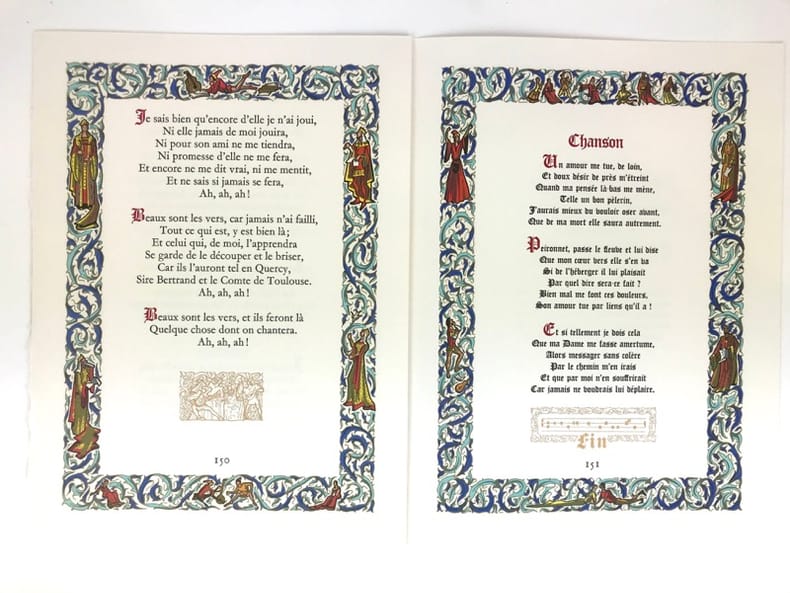 Je sais bien qu'encore d'elle je n'ai joui,
Ni elle jamais de moi jouira,
Ni pour son ami ne me tiendra,
Ni promesse d'elle ne me fera,
Et encore ne me dit vrai, ni me mentit,
Et ne sais si jamais se fera,
Ah, ah, ah !
Beaux sont les vers, car jamais n'ai failli,
Tout ce qui est, y est bien là ;
Et celui qui, de moi, l'apprendra
Se garde de le découper et le briser,
Car ils l'auront tel en Quercy,
Sire Bertrand et le Comte de Toulouse.
Ah, ah, ah !
Beaux sont les vers, et ils feront là
Quelque chose dont on chantera.
Ah, ah, ah !
150
Chanson
Un amour me tue, de loin,
Et doux désir de près m'étreint
Quand ma pensée là-bas me mène,
Telle un bon pèlerin,
J'aurais mieux du vouloir oser avant,
Que de ma mort elle saura autrement.
Peironnet, passe le fleuve et lui dise
Que mon cœur vers elle s'en va
Si de l'héberger il lui plaisait
Par quel dire sera-ce fait ?
Bien mal me font ces douleurs,
Son amour tue par liens qu'il a !
Et si tellement je dois cela
Que ma Dame me fasse amertume,
Alors messager sans colère
Par le chemin m'en irais
Et que par moi n'en souffrirait
Car jamais ne voudrais lui déplaire.
Fin
151